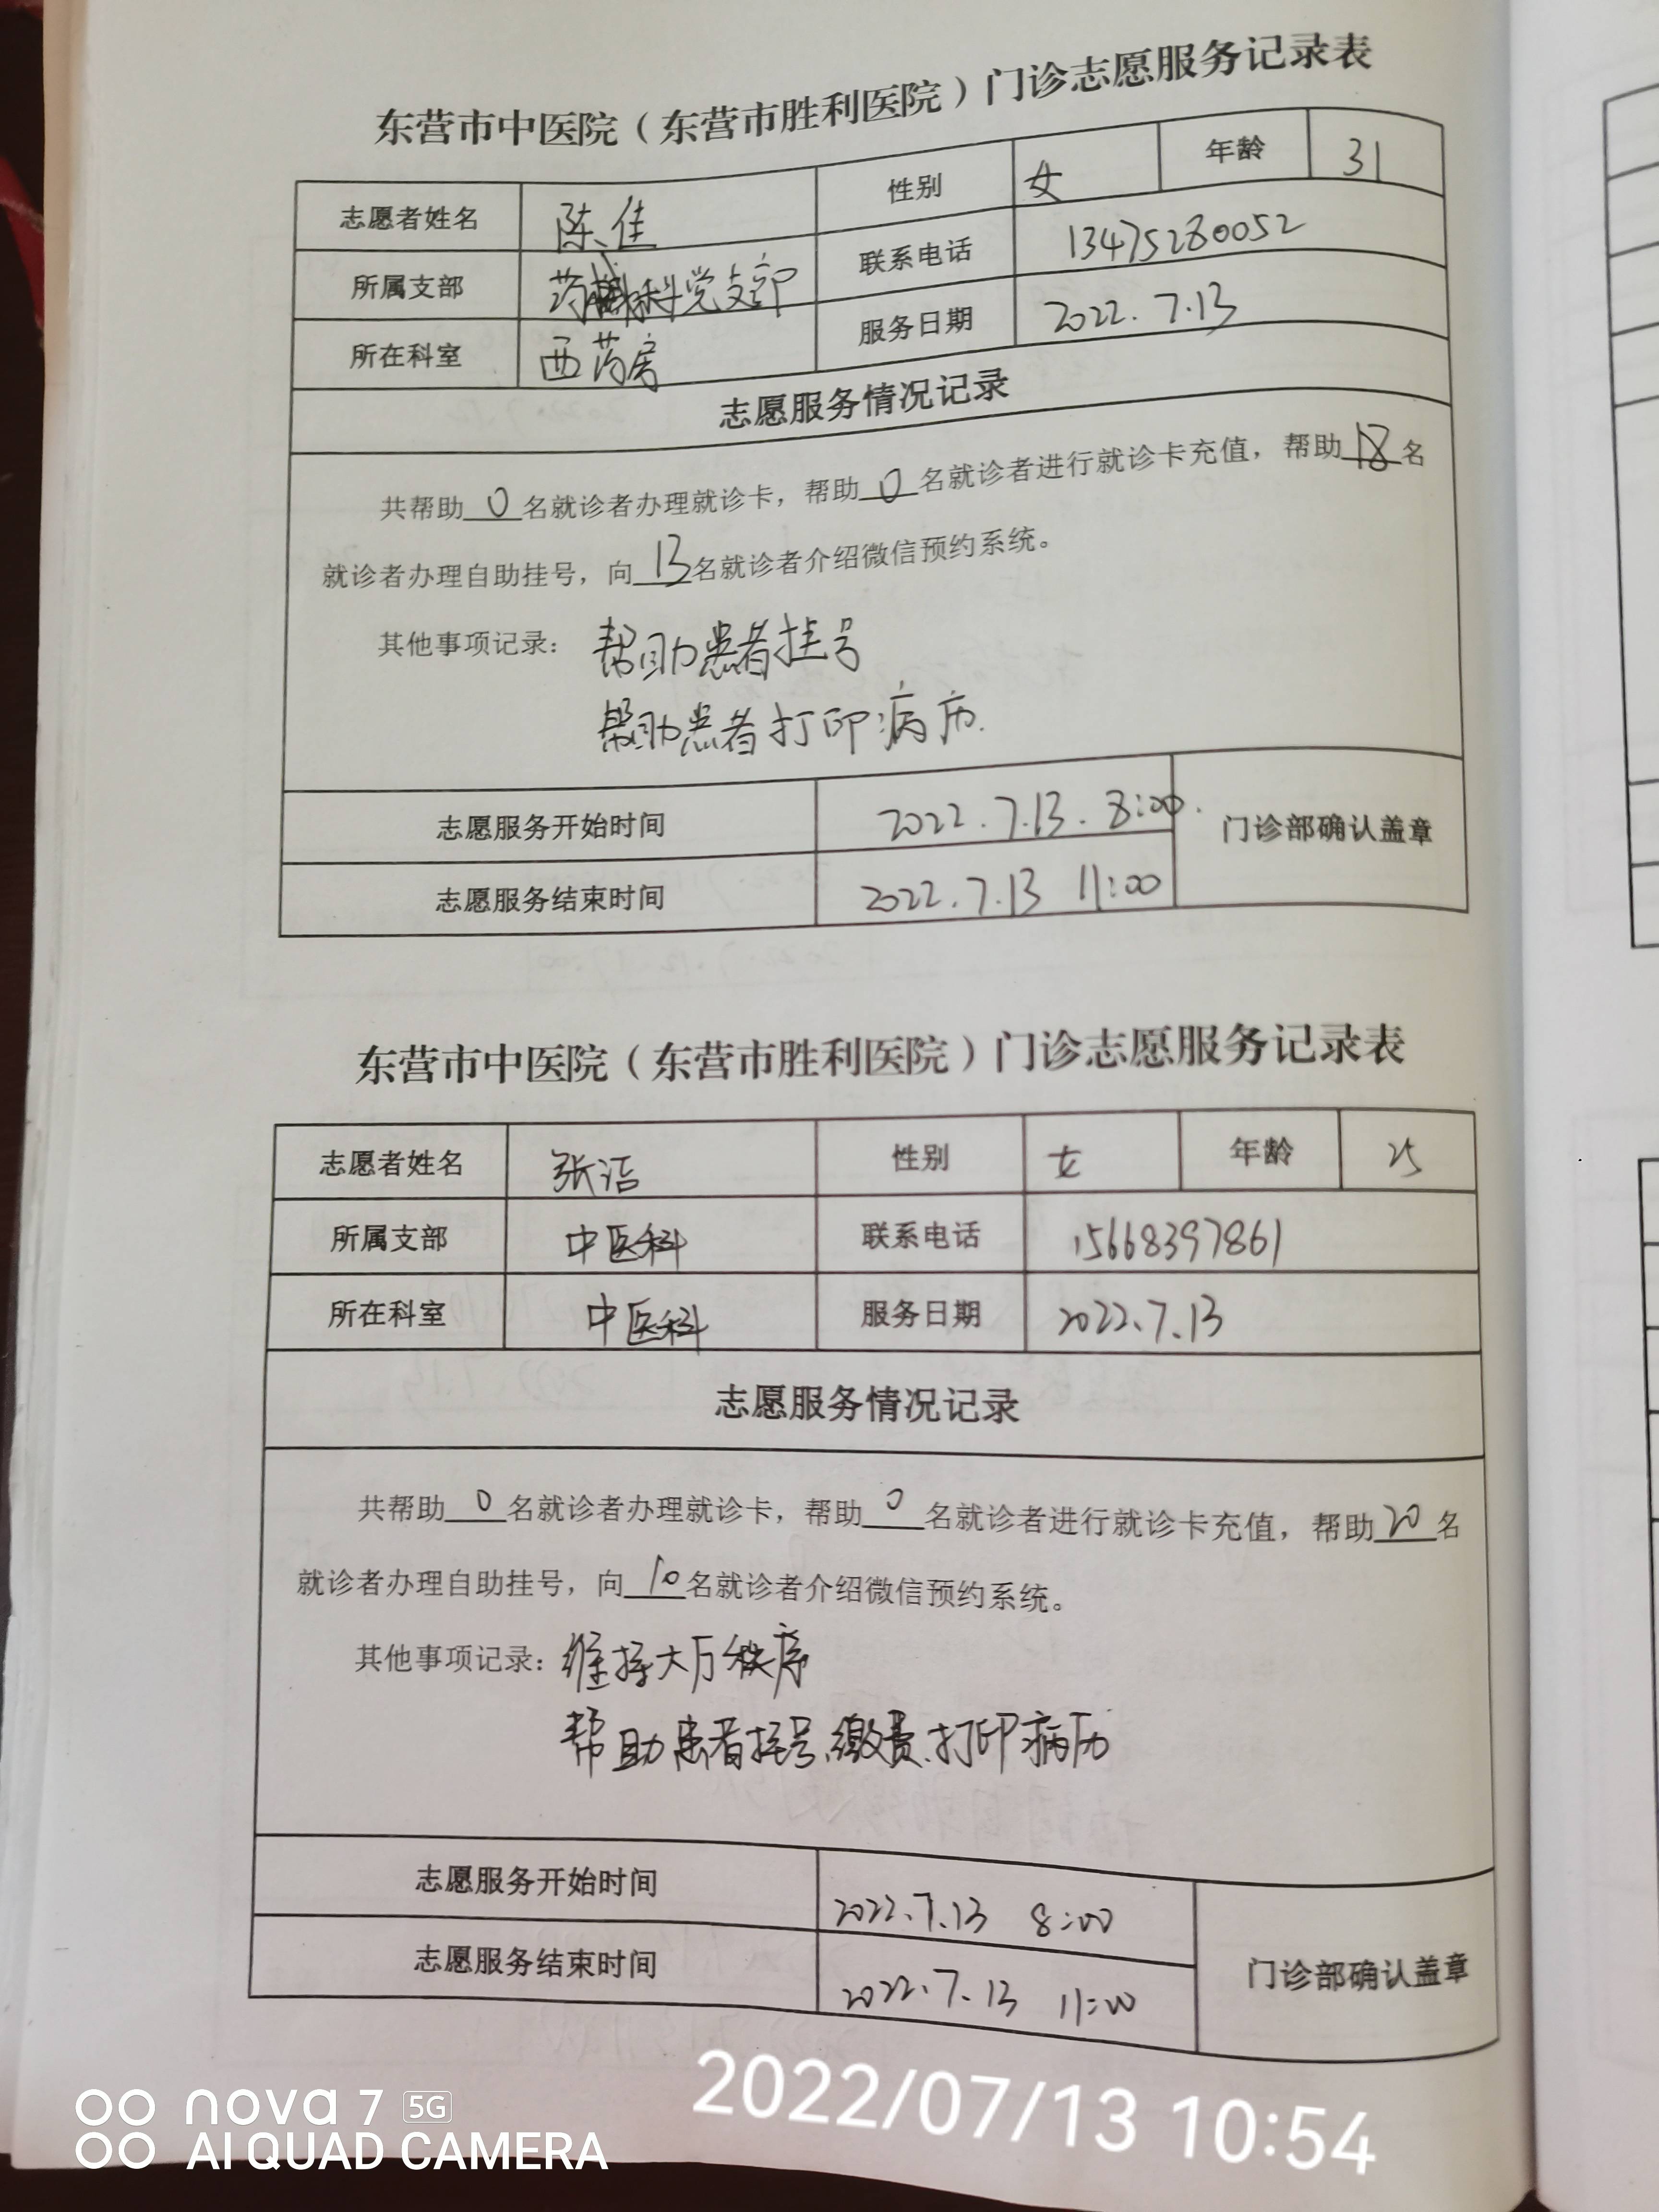 东营市中医院（东营市胜利医院）门诊志愿服务记录表
志愿者姓名 陈佳 性别 女 年龄 31
所属支部 药械科党支部 联系电话 13475280052
所在科室 西药房 服务日期 2022.7.13
志愿服务情况记录
共帮助0名就诊者办理就诊卡，帮助0名就诊者进行就诊卡充值，帮助18名
就诊者办理自助挂号，向13名就诊者介绍微信预约系统。
其他事项记录：帮助患者挂号
帮助患者打印病历.
志愿服务开始时间 2022.7.13. 8:00. 门诊部确认盖章
志愿服务结束时间 2022.7.13 11:00
东营市中医院（东营市胜利医院）门诊志愿服务记录表
志愿者姓名 张洁 性别 女 年龄 25
所属支部 中医科 联系电话 15668397861
所在科室 中医科 服务日期 2022.7.13
志愿服务情况记录
共帮助0名就诊者办理就诊卡，帮助0名就诊者进行就诊卡充值，帮助20名
就诊者办理自助挂号，向10名就诊者介绍微信预约系统。
其他事项记录：维持大厅秩序
帮助患者挂号、缴费、打印病历
志愿服务开始时间 2022.7.13 8:00 门诊部确认盖章
志愿服务结束时间 2022.7.13 11:00
2022/07/13 10:54
nova 7 5G
AI QUAD CAMERA